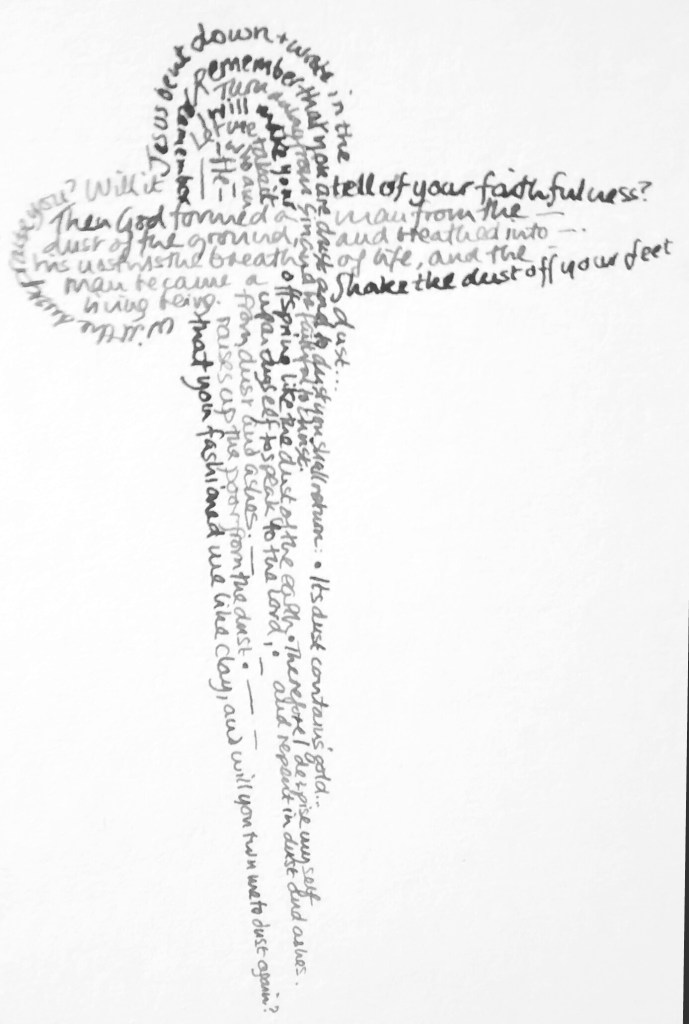 Jesus bent down + wrote in the dust...
Remember that you are dust and to dust you shall return: • Its dust contains gold...
Turn away from sin and be faithful to Christ.
I will make your offspring like the dust of the earth • Therefore I despise myself and repent in dust and ashes.
Let me take it upon myself to speak to the Lord,
who am from dust and ashes.
He raises up the poor from the dust •
Remember that you fashioned me like clay, and will you turn me to dust again?
Will the dust praise you? Will it tell of your faithfulness?
Then God formed a man from the
dust of the ground, and breathed into
his nostrils the breath of life, and the
man became a
living being.
Shake the dust off your feet